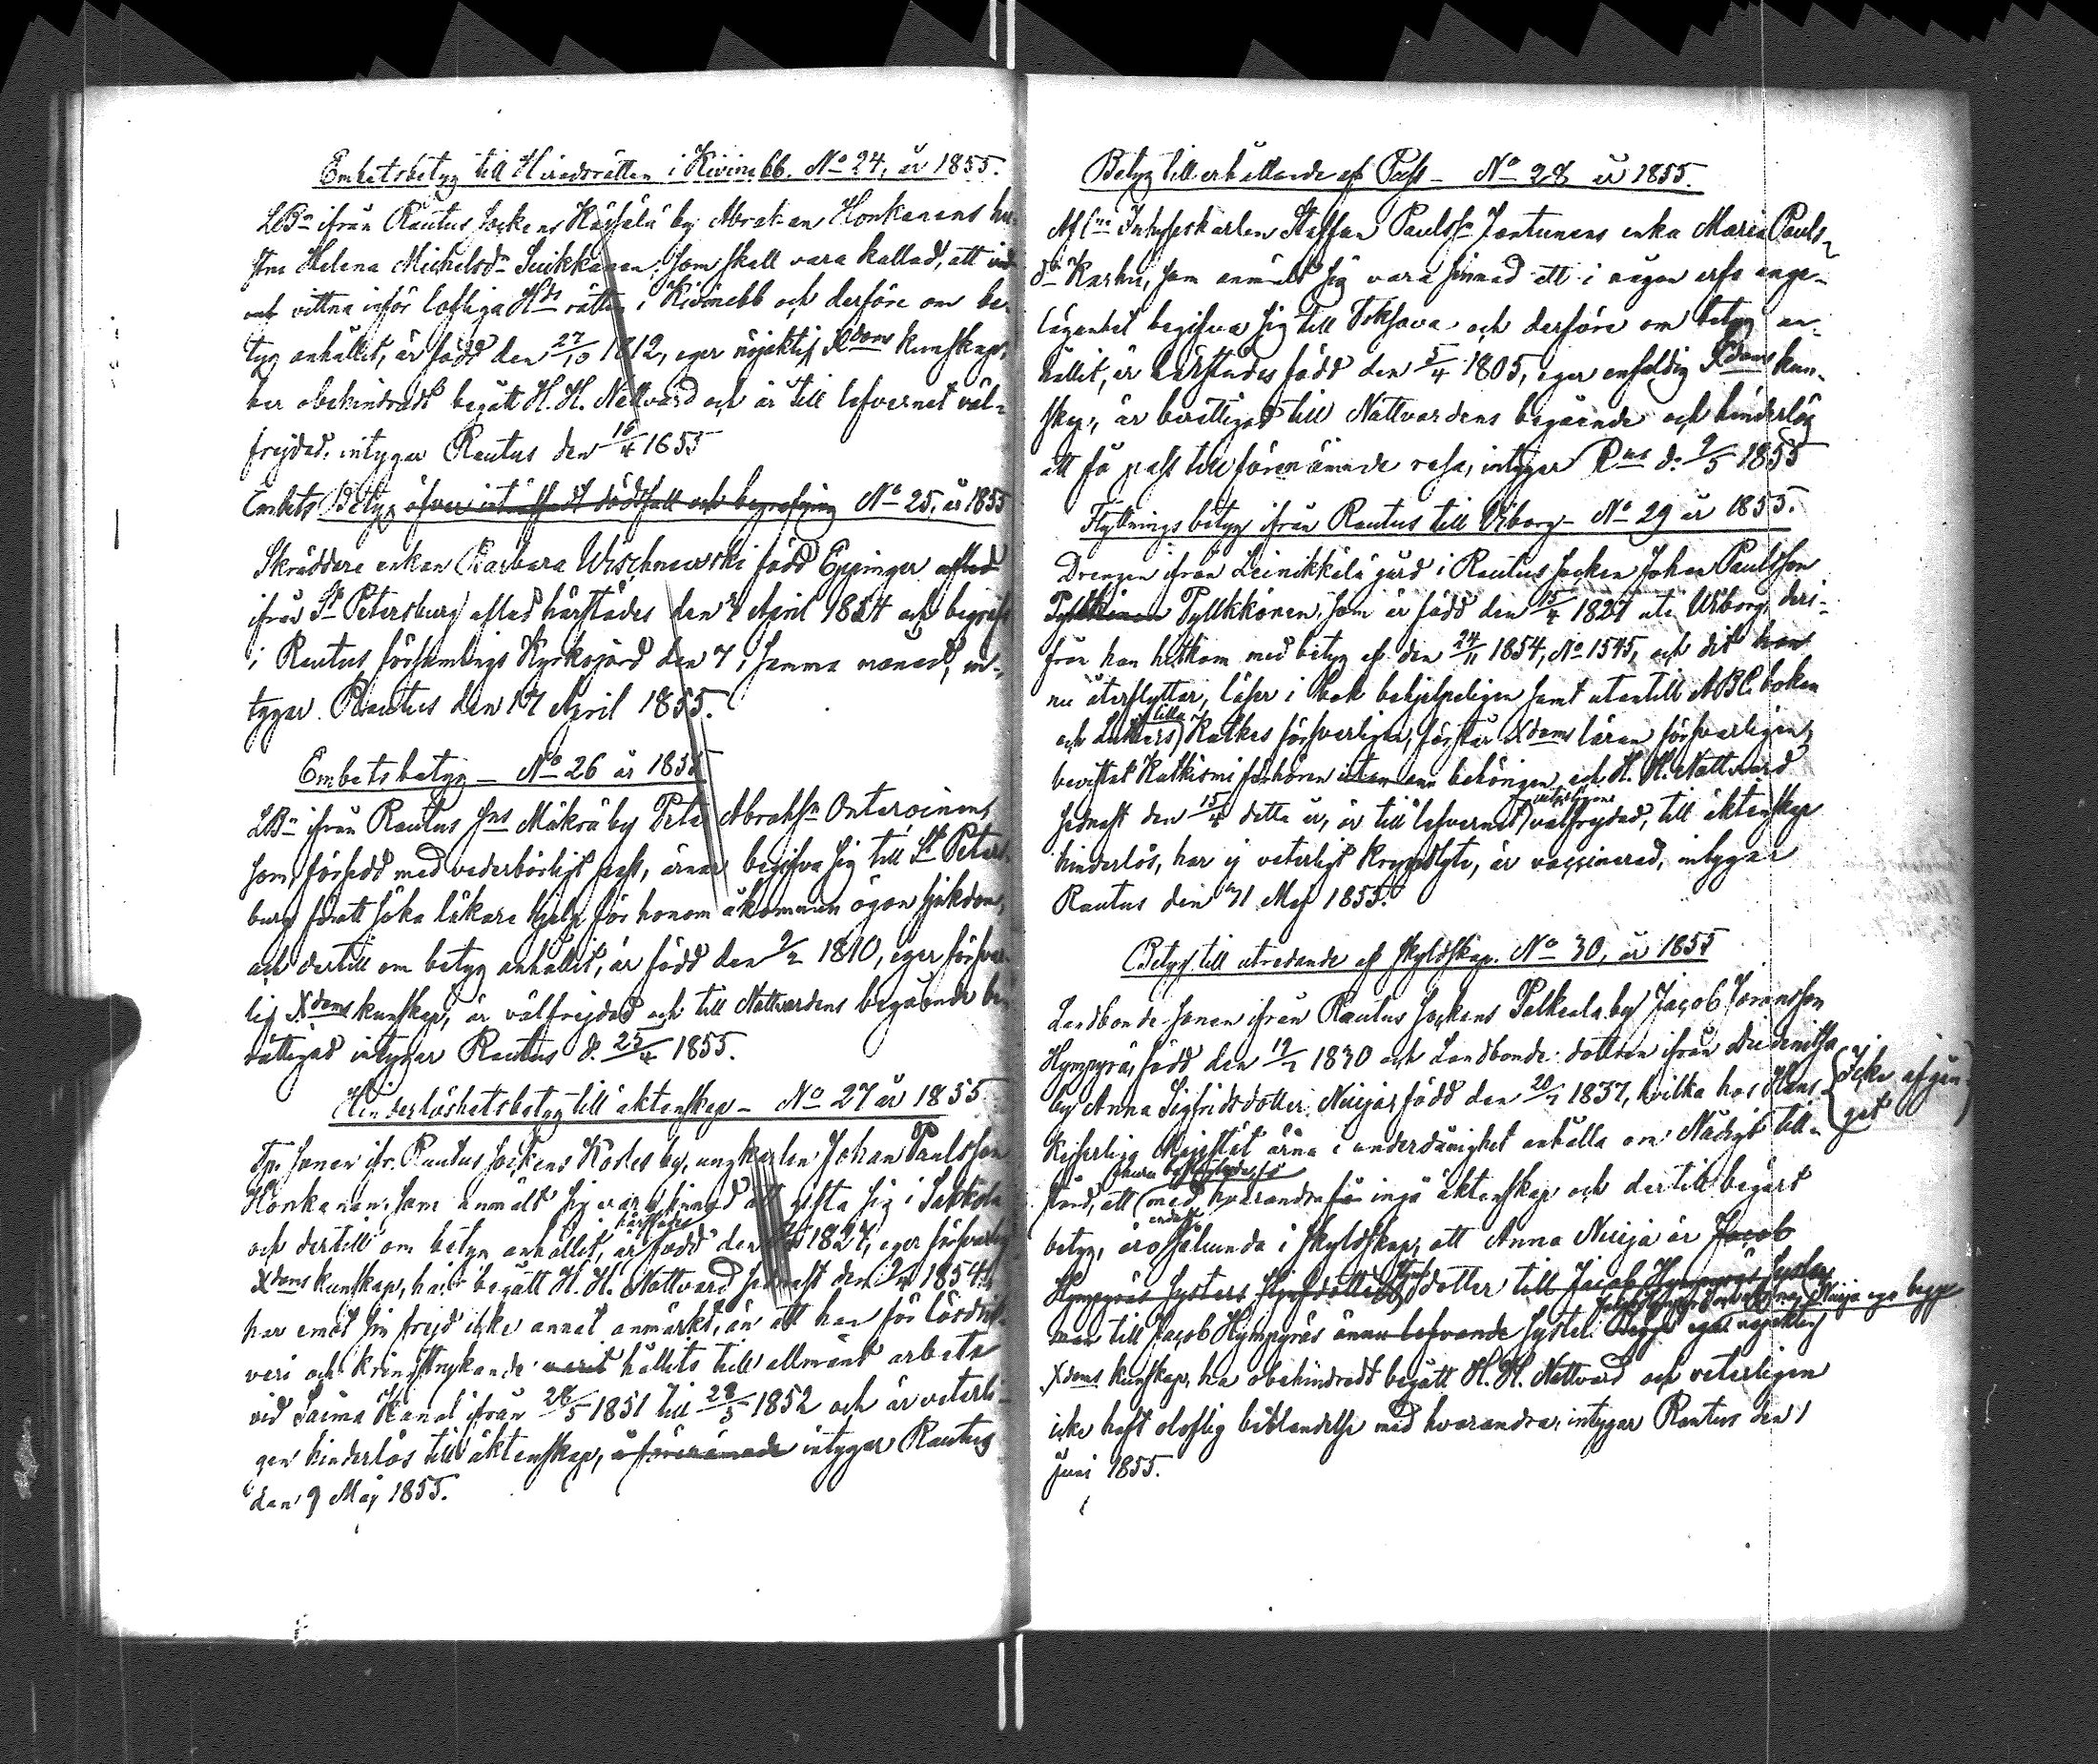 Embetsbetyg till Häradsrätten i Kivinebb. No 24, år 1855.
LBn ifrån Rautus Sockens Käsälä by Abraham Honkanens hu-
stru Helena Michelsdr Suikkanen, som skall vara kallad, att
vittna inför lofliga Hds rätten i Kivinebb och derföre om be-
tyg anhållet, är född den 27/10 1812, eger nöjaktig Xdoms kunskap,
har obehindradt begått H. H. Nattvard och är till lefvernet väl-
frejdad, intygar Rautus den 16/4 1855
Embets Betyg öfver inträffadt dödsfall och begrafning No 25, år 1855
Skräddare enkan Barbara Wischnewski född Eppinger
ifrån St Petersburg aflad härstädes den 2 April 1854 och begrofs
i Rautus församlings Kyrkogård den 7 i samma månad, in-
tygar Rautus den 17 April 1855.
Embetsbetyg – No 26 år 1855
LBn ifrån Rautus Sns Mäkrä by Peter Abrahsn Onteroinen,
som, försedd med vederbörligt pass, ärnar begifva sig till St Peters-
burg föratt söka läkare hjelp för honom åkommen ögon sjukdom,
och dertill om betyg anhållit, är född den 9/2 1810, eger försvar-
lig Xdoms kunskap, är välfrejdad och till Nattvardens begående be-
rättigad intygar Rautus d. 25/4 1855.
Hinderlöshetsbetyg till äktenskap – No 27 år 1855
Tp. sonen ifr. Rautus sockens Kosles by, ungkarlen Johan Paulsson
Honkanen, som anmält sig vara sinnad att gifta sig i Sakkola
och dertill om betyg anhållit, är härstädes född den 1827, eger försvarlig
Xdoms kunskap, har begått H. H. Nattvard sednast den 1854,
har emot sin frejd icke annat anmärkt, än att han för lösdri-
veri och kringstrykande varit hållits till allmänt arbete
vid Saima Kanal ifrån 28/5 1851 till 28/5 1852 och är veterli-
gen hinderlös till äktenskap, å förenämnde intygar Rautus
den 9 Maj 1855.
Betyg till erhållande af Pass – No 28 år 1855.
Afl:ne Inhyseskarlen Staffan Paulss:n Jantunens enka Maria Pauls-
dr Karhu, som anmält sig vara sinnad att i någon arfs ange-
lägenhet begifva sig till Toksova och derföre om betyg an-
hållit, är härstädes född den 5/4 1805, eger enfaldig Xdoms kun-
skap, är berättigad till Nattvardens begående och hinderlös
att få pass till förenämnde resa, intygar Rus d. 9/5 1855
Flyttnings betyg ifrån Rautus till Wiborg – No 29 år 1855.
Drengen ifrån Leinikkälä gård i Rautus Socken Johan Paulsson
Pylkkänen Pyllkkönen, som är född den 15/4 1827 uti Wiborg, deri-
från han hitkom med betyg af den 24/11 1854, No 1545, och dit han
nu återflyttar, läser i bok behjelpeligen samt utantill ABC boken
och Luthers lilla Kathes försvarligen, förstår Xdoms läran försvarligen,
bevistat Kathismi förhören behörigen och H. H. Nattvard
sednast den 15/4 detta år, är till lefvernet veterligen välfrejdad, till äktenskap
hinderlös, har ej veterligt kroppslyte, är vaccinerad, intygar
Rautus den 31 Maj 1855.
Betyg till utredande af skyldskap. No 30, år 1855
Landbonde-sonen ifrån Rautus sockens Palkeala by Jacob Göransson
Hymppyrä, född den 19/2 1830 och Landbonde-dottern ifrån
by Anna Sigfridsdotter Nuija född den 20/7 1837, hvilka hos Hans
Kejserliga Majestät ärna i underdånighet anhålla om Nådigt till-
stånd, att med hvarandra få ingå äktenskap och dertill begärt
betyg, äro endast sålunda i skyldskap, att Anna Nuija är Jacob
Hymppyräs systers styfdotter dotter till Jacob Hymppyräs syster
man till Jacob Hymppyräs ännu lefvande syster. Begge ega nöjaktig
Nuija ega begge
Xdoms kunskap, ha obehindradt begått H. H. Nattvard och veterligen
icke haft oloflig beblandelse med hvarandra, intygar Rautus den 1
Juni 1855.
Icke afgån-
get